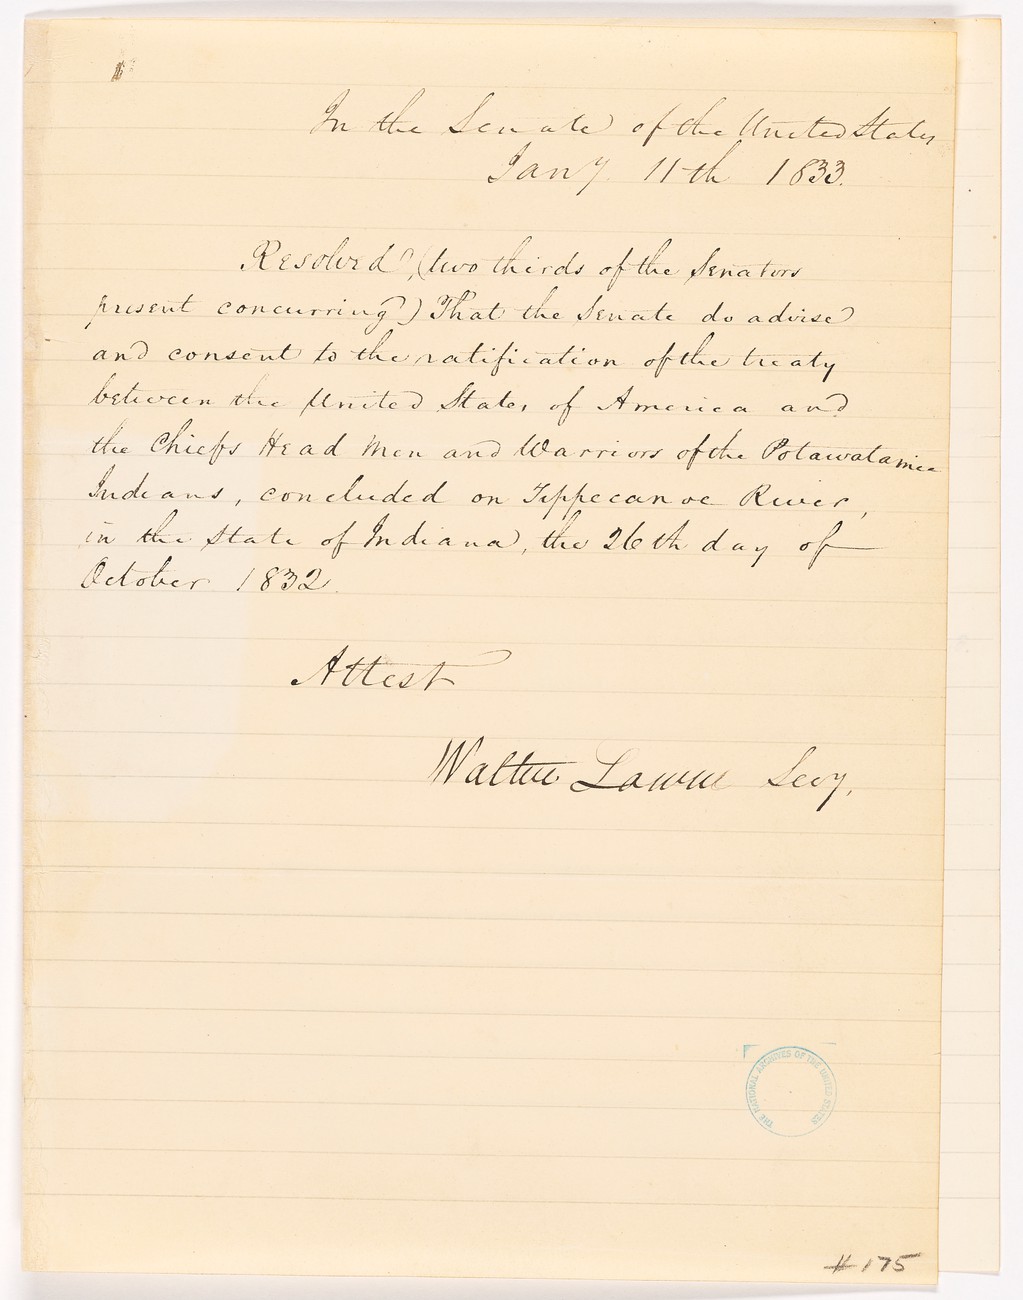 In the Senate of the United States
Jany 11th 1833.
Resolved, (two thirds of the Senators
present concurring) That the Senate do advise
and consent to the ratification of the treaty
between the United States of America and
the Chiefs Head Men and Warriors of the Potawatamie
Indians, concluded on Tippecanoe River,
in the State of Indiana, the 26th day of
October 1832.
Attest
Walter Lowrie Secy.
THE NATIONAL ARCHIVES OF THE UNITED STATES
# 175